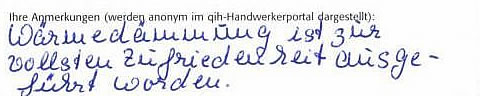 Ihre Anmerkungen (werden anonym im qih-Handwerkerportal dargestellt):
Wärmedämmung ist zur
vollsten Zufriedenheit ausge-
führt worden.